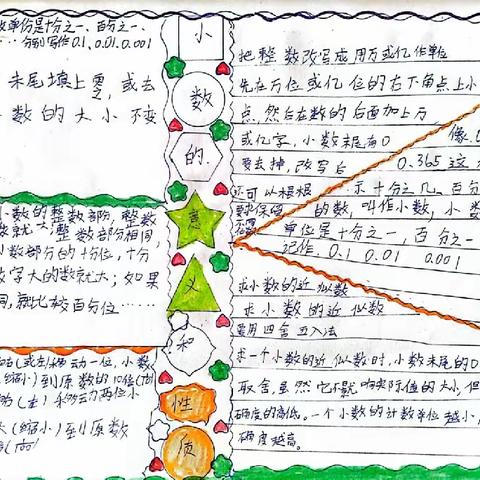 数单份是十分之一、百分之一、
分别写作0.1,0.01,0.001
末尾填上零,或去
数的大小不变
小数的整数部分,整数
数就大;整数部分相同,
小数部分的十分位,十分
数字大的数就大;如果
同,就比较百分位……
(或左)移动一位,小数
缩小)到原数的10倍
(左)移动两位小
大(缩小)到原数
小
数
的
意
义
和
性
质
把整数改写成用万或亿作单位
先在万位或亿位的右下角点上小
点,然后在数的后面加上万
或亿字,小数末尾有0
要去掉,改写后
还可以根据
要保留
像0.
0.365这
示十分之几、百分
的数,叫作小数,小数
单位是十分之一,百分之一
记作0.1 0.01 0.001
求小数的近似数
求小数的近似数
要用四舍五入法
求一个小数的近似数时,小数末尾的0
取舍,虽然它不影响实际值的大小,但
确度的高低。一个小数的计数单位越小,
确度越高。